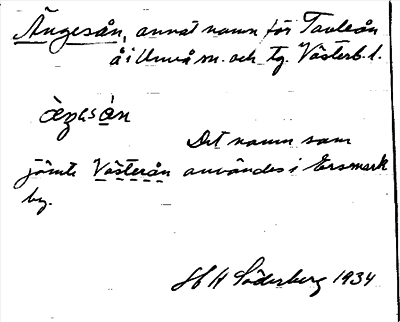 Ängesån, annat namn för Tavleån
å i Umeå sn. och tg. Västerb. l.
Det namn som
jämte Västerån användes i Ersmark
by.
H Söderberg 1934